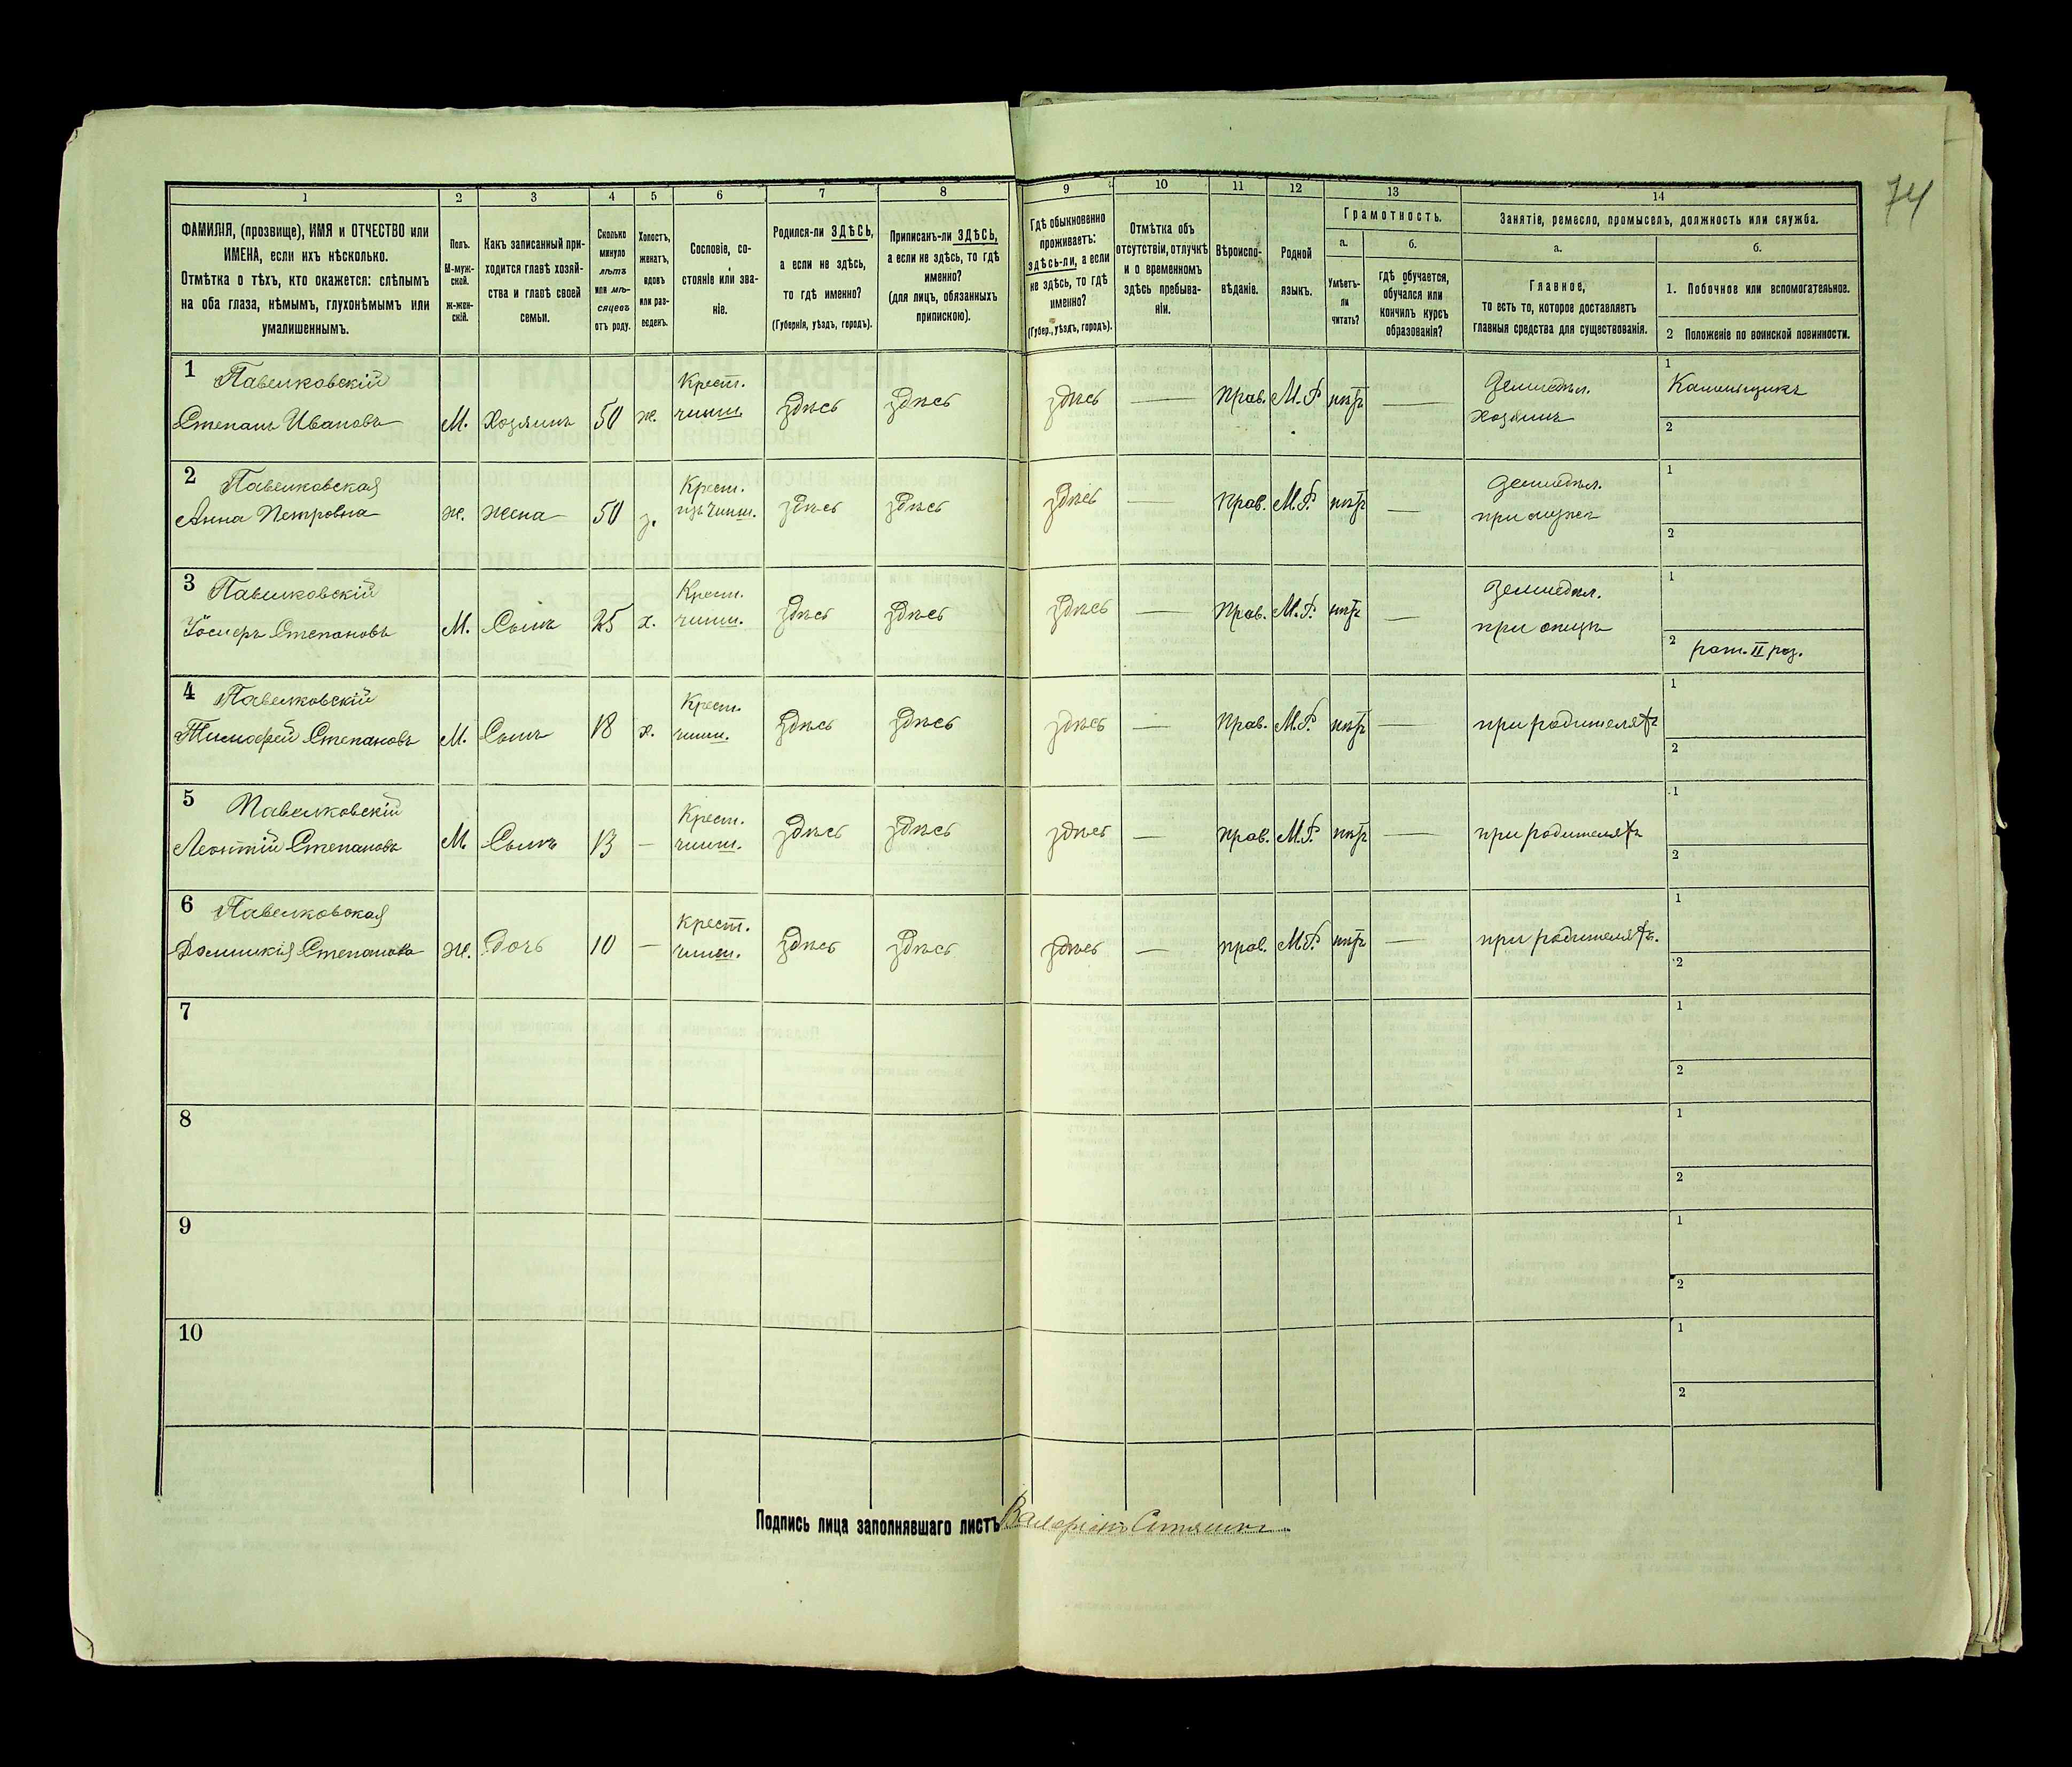 74
1 2 3 4 5 6 7 8 9 10 11 12 13 14
ФАМИЛІЯ, (прозвище), ИМЯ и ОТЧЕСТВО или
ИМЕНА, если ихъ нѣсколько.
Отмѣтка о тѣхъ, кто окажется: слѣпымъ
на оба глаза, нѣмымъ, глухонѣмымъ или
умалишеннымъ.
Полъ.
М-муж-
ской.
ж-жен-
скій.
Какъ записанный при-
ходится главѣ хозяй-
ства и главѣ своей
семьи.
Сколько
минуло
лѣтъ
или мѣ-
сяцевъ
отъ роду.
Холостъ,
женатъ,
вдовъ
или раз-
веденъ.
Сословіе, со-
стояніе или зва-
ніе.
Родился-ли ЗДѢСЬ,
а если не здѣсь,
то гдѣ именно?
(Губернія, уѣздъ, городъ).
Приписанъ-ли ЗДѢСЬ,
а если не здѣсь, то гдѣ
именно?
(для лицъ, обязанныхъ
припискою).
Гдѣ обыкновенно
проживаетъ:
здѣсь-ли, а если
не здѣсь, то гдѣ
именно?
(Губер., уѣздъ, городъ).
Отмѣтка объ
отсутствіи, отлучкѣ
и о временномъ
здѣсь пребыва-
ніи.
Вѣроиспо-
вѣданіе.
Родной
языкъ.
Грамотность.
а.
Умѣетъ-
ли
читать?
б.
гдѣ обучается,
обучался или
кончилъ курсъ
образованія?
Занятіе, ремесло, промыселъ, должность или служба.
а.
Главное,
то есть то, которое доставляетъ
главныя средства для существованія.
б.
1. Побочное или вспомогательное.
2 Положеніе по воинской повинности.
1 Павелковскій
Степанъ Ивановъ М. Хозяинъ 50 ж. Крест. чинш. здѣсь здѣсь здѣсь — Прав. М. Р. нѣтъ — Земледѣл. хозяинъ 1 Каменщикъ
2
2 Павелковская
Анна Петровна ж. жена 50 з. Крест. изъ чинш. здѣсь здѣсь здѣсь — Прав. М. Р. нѣтъ — Земледѣл. при мужѣ 1
2
3 Павелковскій
Іосифъ Степановъ М. Сынъ 25 х. Крест. чинш. здѣсь здѣсь здѣсь — Прав. М. Р. нѣтъ — Земледѣл. при отцѣ 1
2 рат. II раз.
4 Павелковскій
Тимофей Степановъ М. Сынъ 18 х. Крест. чинш. здѣсь здѣсь здѣсь — Прав. М. Р. нѣтъ — при родителяхъ 1
2
5 Павелковскій
Леонтій Степановъ М. Сынъ 13 — Крест. чинш. здѣсь здѣсь здѣсь — прав. М. Р. нѣтъ — при родителяхъ 1
2
6 Павелковская
Домникія Степанова ж. дочь 10 — Крест. чинш. здѣсь здѣсь здѣсь — прав. М. Р. нѣтъ — при родителяхъ. 1
2
7 1
2
8 1
2
9 1
2
10 1
2
Подпись лица заполнявшаго листъ